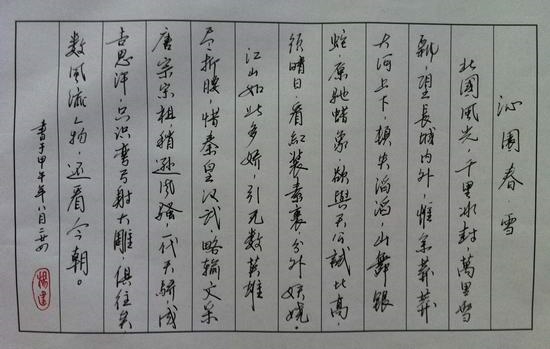 沁園春 雪
北國風光，千里冰封，萬里雪
飄，望長城内外，惟余莽莽
大河上下，頓失滔滔，山舞銀
蛇，原馳蠟象，欲與天公試比高，
須晴日，看紅装素裹，分外妖娆。
江山如此多娇，引无数英雄
尽折腰，惜秦皇汉武略输文采
唐宗宗祖稍逊风骚，一代天骄成
吉思汗，只识弯弓射大雕，俱往矣
数风流人物，还看今朝。
書于甲午年八月
楊建